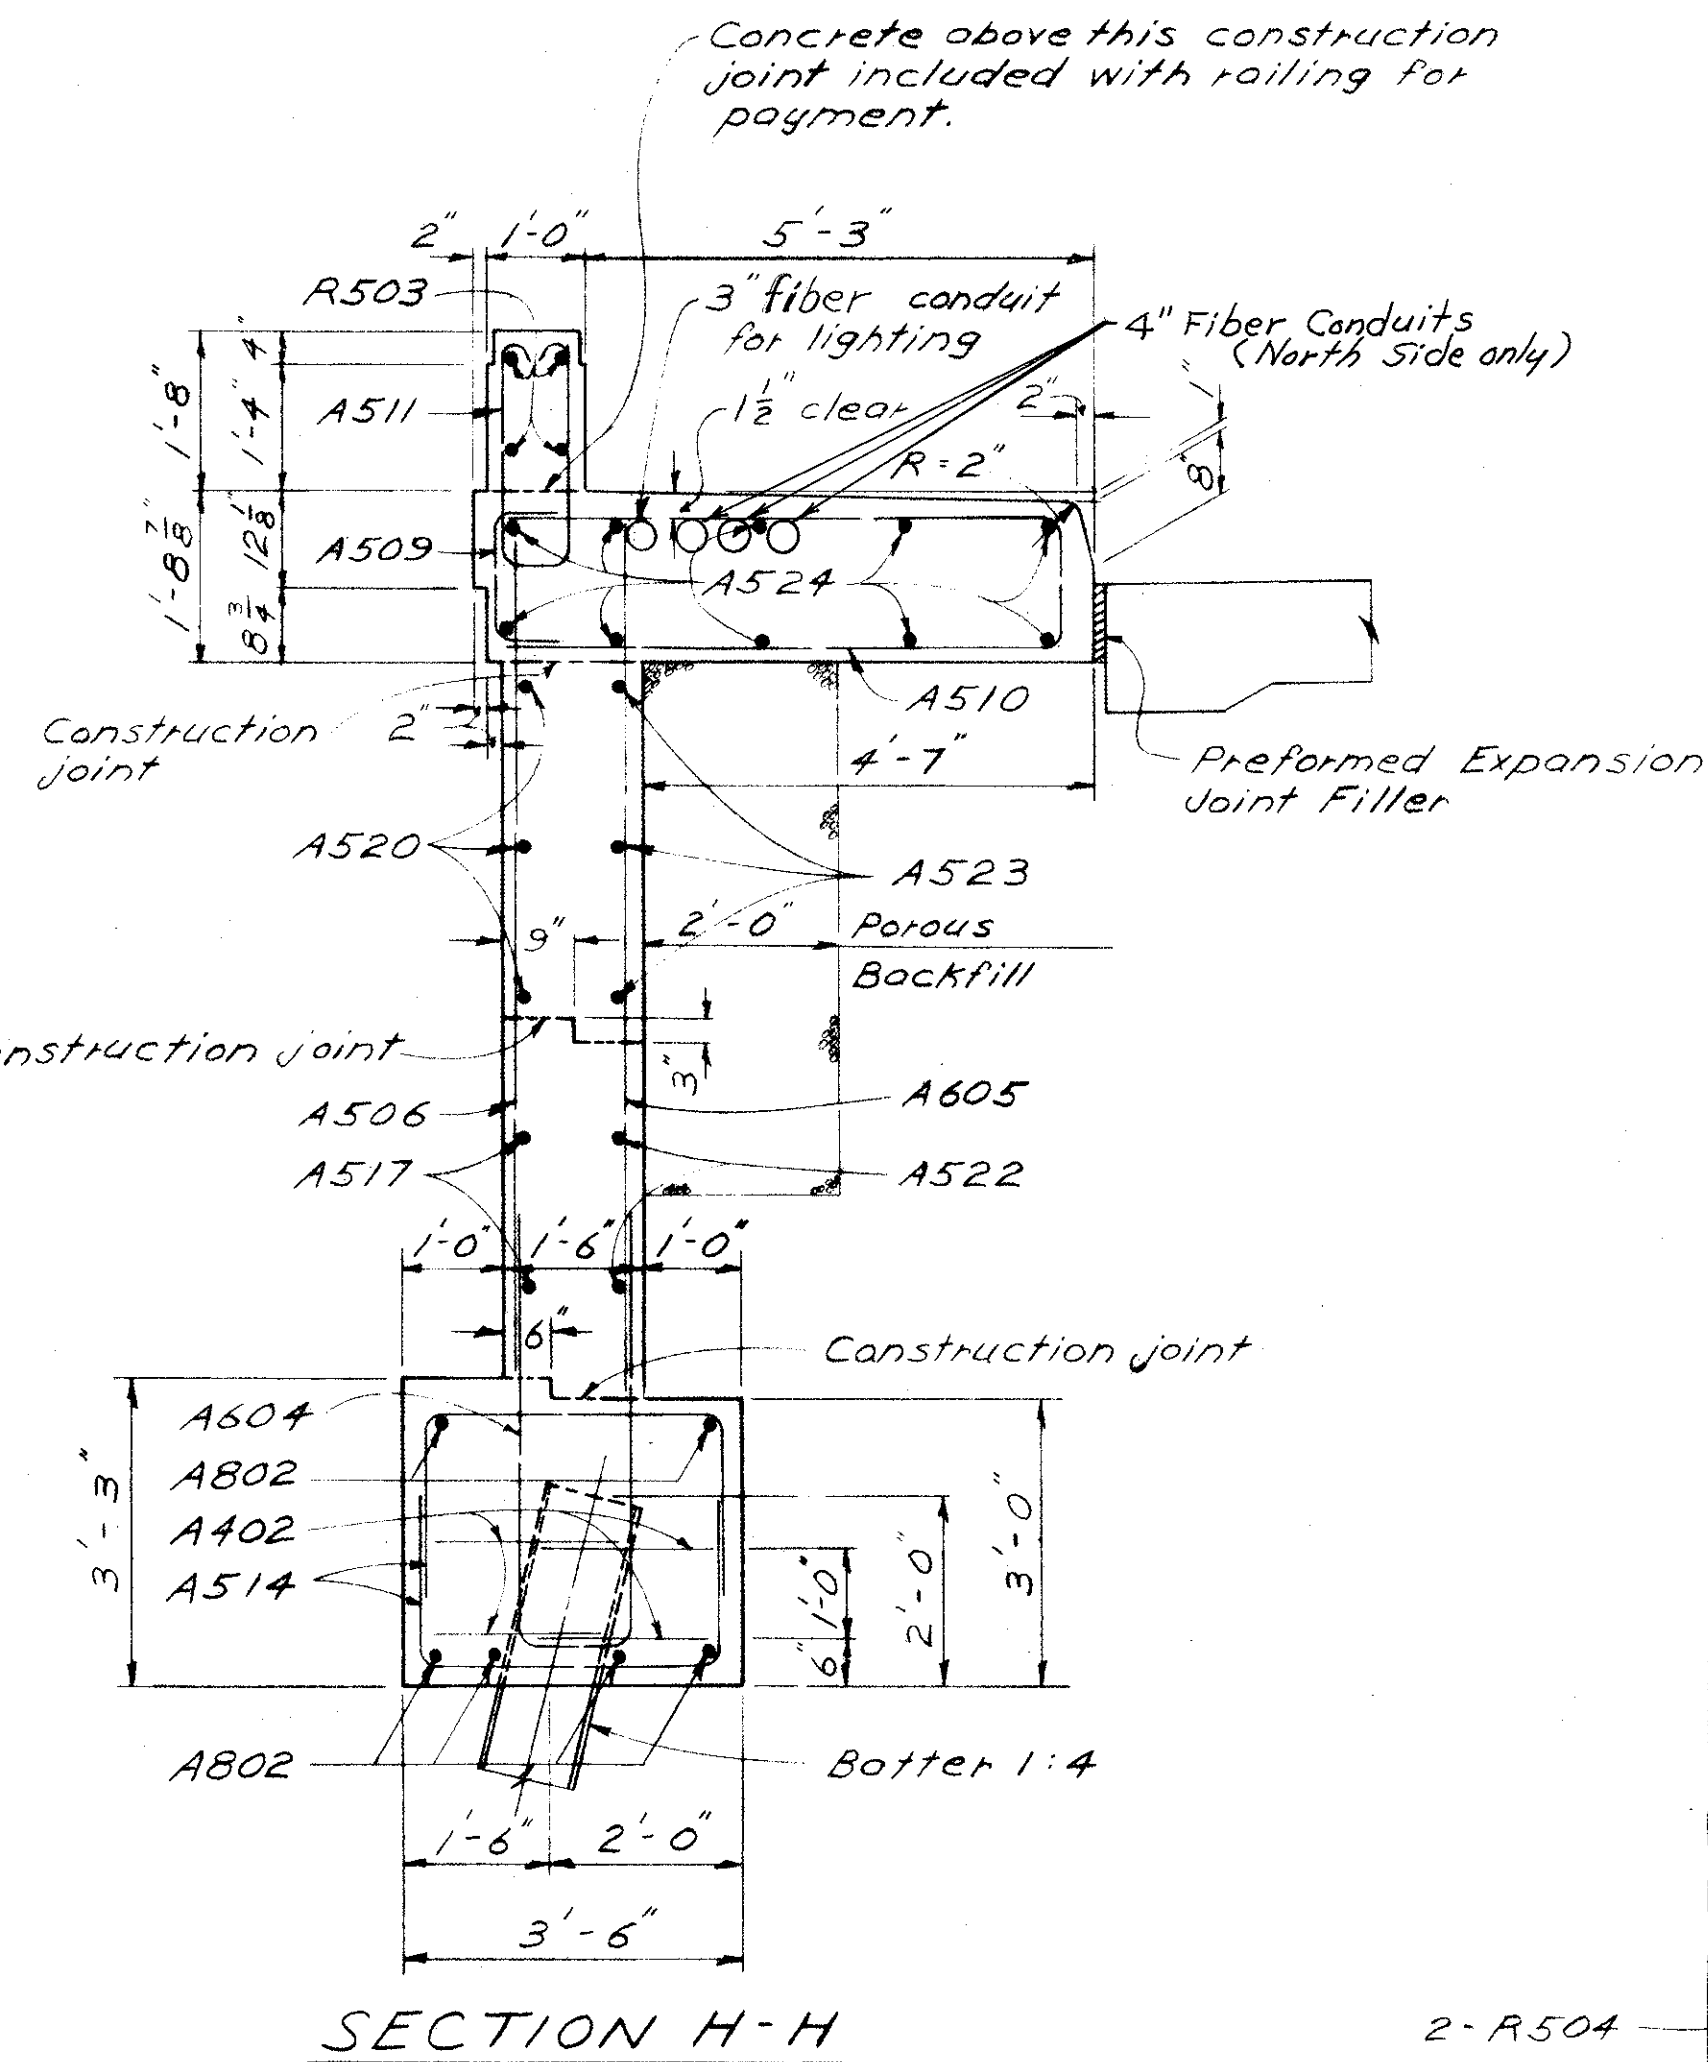 Concrete above this construction
joint included with railing for
payment.
2" 1'-0" 5'-3"
R503
3" fiber conduit
for lighting
4" Fiber Conduits
(North Side only)
1'-8" 4"
1'-4"
A511
1 1/2" clear
2"
1"
R = 2"
8"
1'-8 7/8" 12 1/8"
8 3/4"
A509
A524
A510
Construction
joint
2"
2"
4'-7"
Preformed Expansion
Joint Filler
A520
A523
9"
2'-0" Porous
Backfill
nstruction joint
3"
A506
A605
A517
A522
1'-0" 1'-6" 1'-0"
6"
Construction joint
A604
A802
A402
A514
3'-3"
6" 1'-0"
2'-0"
3'-0"
A802
Batter 1:4
1'-6" 2'-0"
3'-6"
SECTION H-H
2-R504